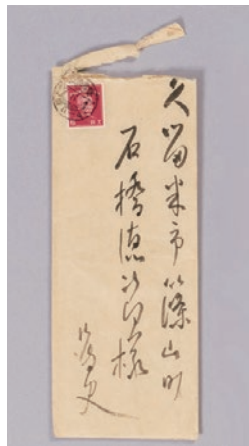 久留米市篠山町
石橋徳次郎様